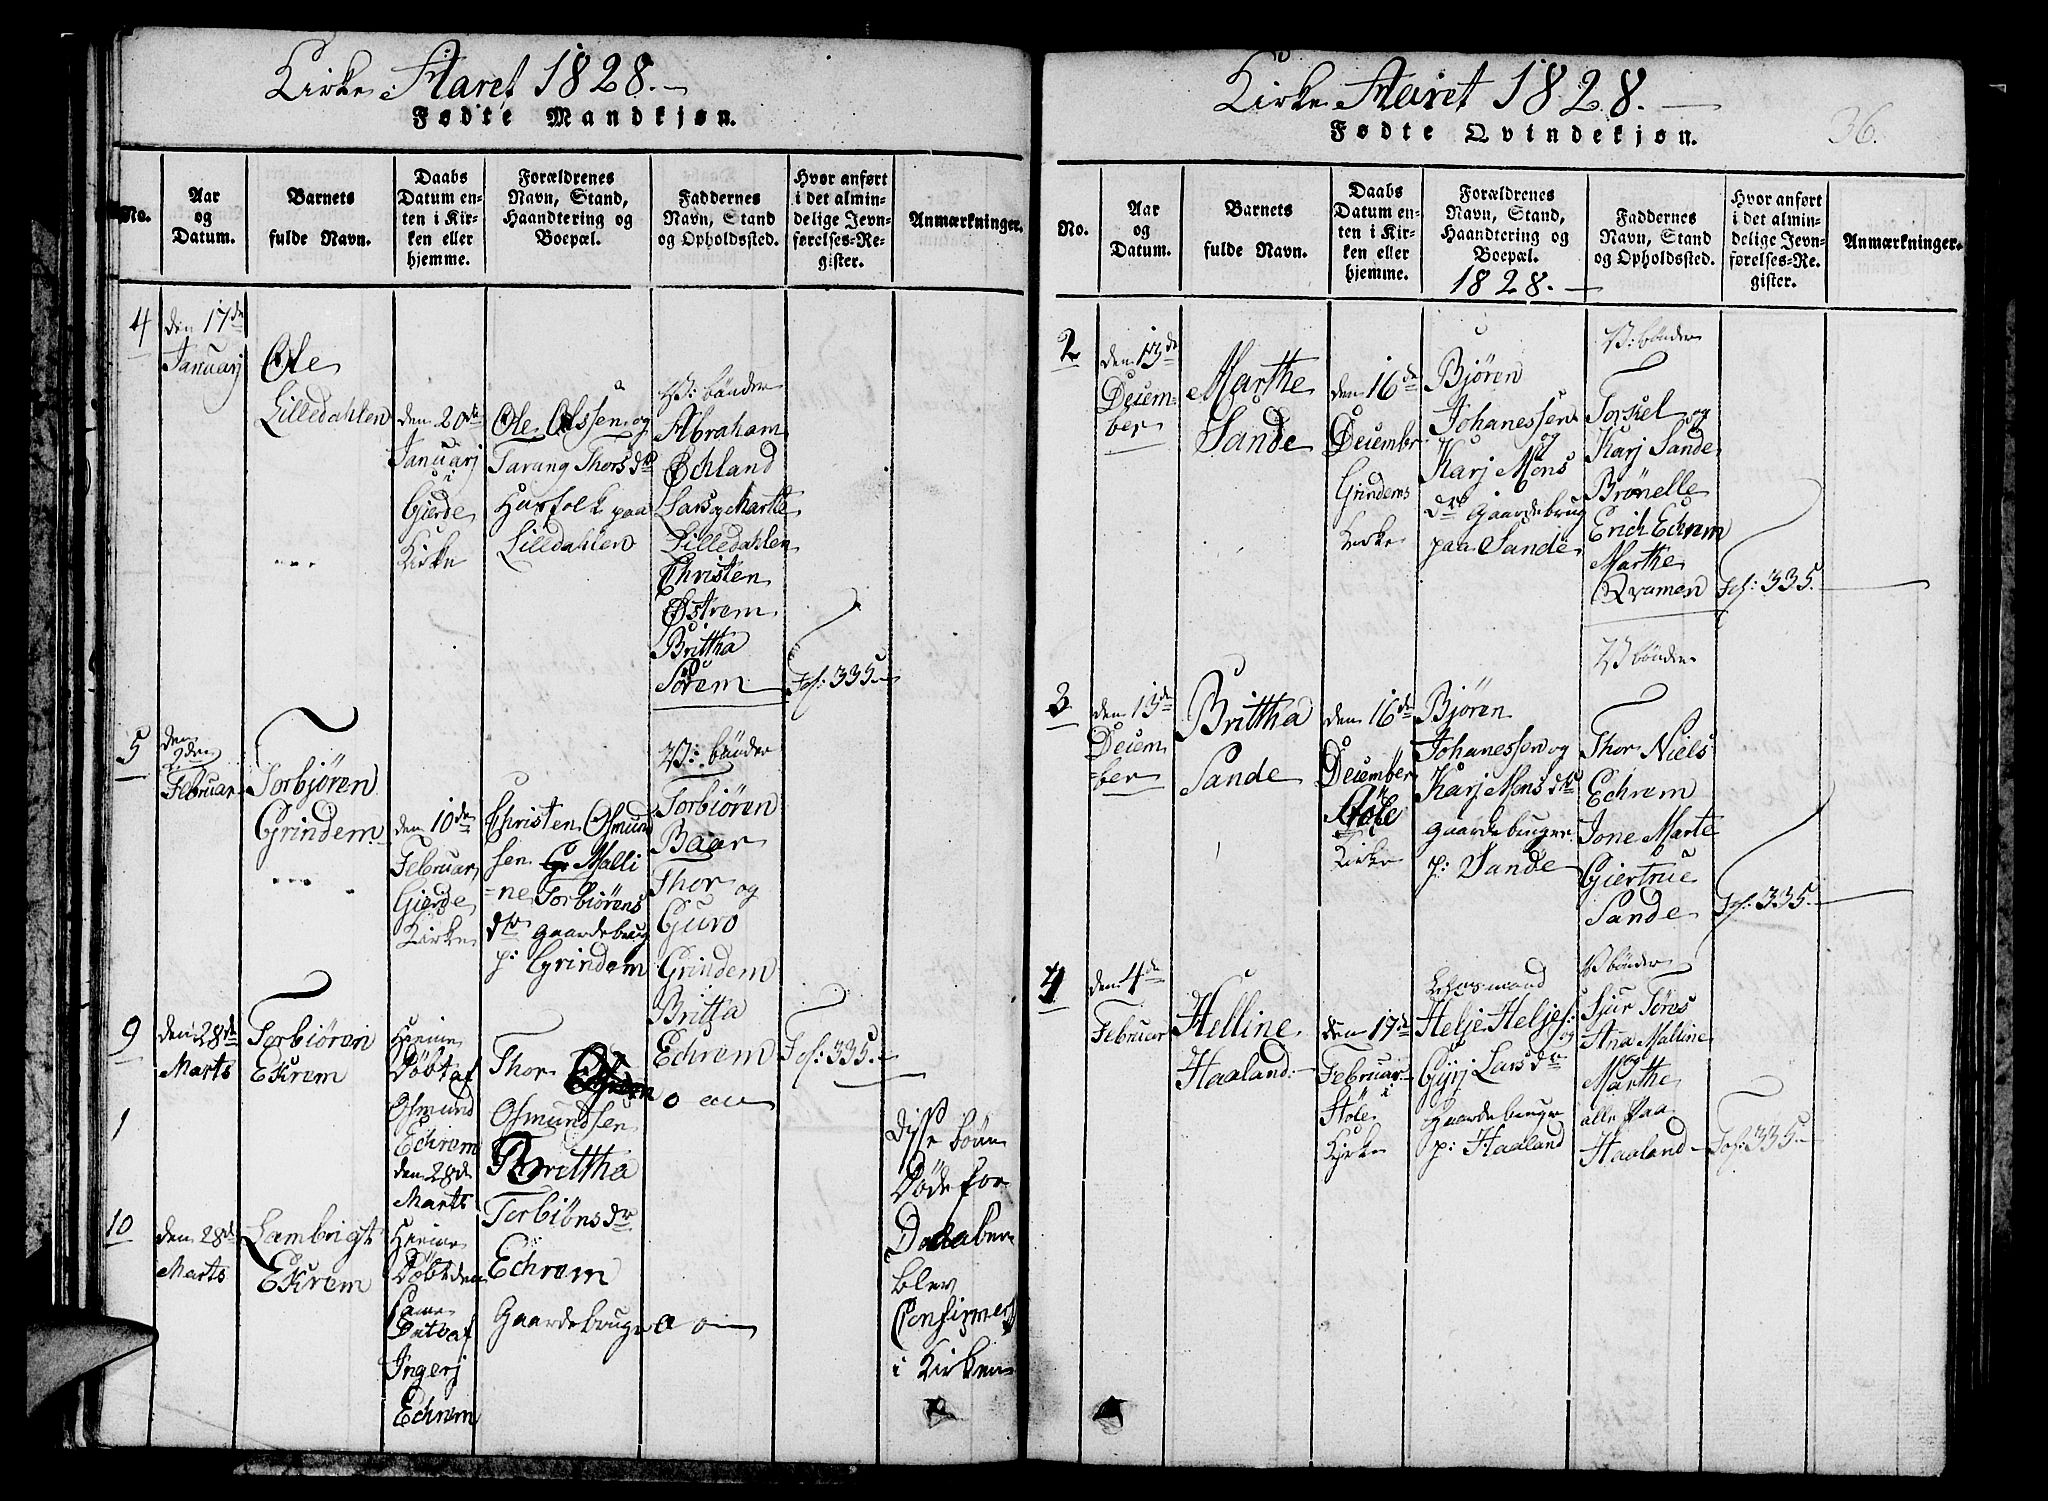 Kirke Aaret 1828.
Fødte Mandkjøn.
No.
Aar
og
Datum.
Barnets
fulde Navn.
Daabs
Datum en-
ten i Kir-
ken eller
hjemme.
Forældrenes
Navn, Stand,
Haandtering og
Boepæl.
Faddernes
Navn, Stand
og Opholdssted.
Hvor anført
i det almin-
delige Jevn-
førelses-Re-
gister.
Anmærkninger.
4
den 17de
Januarj
Ole
Lilledahlen
den 20de
Januarj
i
Gierde
Kirke
Ole Olssen og
Tarang Thorsdr
Husfolk paa
Lilledahlen
V: bönder
Abraham
Øchland
Lars og Marthe
Lilledahlen
Christen
Østrem
Brittha
Sörem
Fol: 335.
5
den
2den
Februar
Torbjören
Grindem
den 10de
Februar
Gierde
Kirke
Christen Osmund
sen Malli
=ne Torbiörens
dtr gaardebrug
p: Grindem
V: bönder
Torbiören
Baar
Thor og
Guro
Grindem
Britta
Echrem
Fol: 335.
9
den 28de
Marts
Torbiören
Ekrem
Hieme
Döbt af
Osmund
Echrem
den 28de
Marts
Thor
Osmundsen
Brittha
Torbiönsdr
Echrem
Gaardebruger
1
10
den 28de
Marts
Lambrigt
Ekrem
Hieme
Döbt den
Same
Dat af
Ingerj
Echrem
Disse börn
Döde for
Daaben
blev
Confirmert
i Kirken
Kirke Aaret 1828.
Fødte Qvindekjøn.
36.
No.
Aar
og
Datum.
Barnets
fulde Navn.
Daabs
Datum en-
ten i Kir-
ken eller
hjemme.
Forældrenes
Navn, Stand,
Haandtering og
Boepæl.
1828.
Faddernes
Navn, Stand
og Opholdssted.
Hvor anført
i det almin-
delige Jevn-
førelses-Re-
gister.
Anmærkninger.
2
den 13de
Decem-
ber
Marthe
Sande
den 16de
Decembr
Grindems
Kirke
Björen
Johanessen
og
Karj Mons
dr Gaardebrug
paa Sande
V: bönder
Torkel og
Karj Sande
Brönelle
Erich Echrem
Marthe
Qvamen
Fol: 335.
3
den 13de
Decem
=ber
Brittha
Sande
den 16de
December
Stöle
Kirke
Björen
Johanessen og
Karj Monsdtr
gaardebruger
p: Sande
V bönder
Thor Niels
Echrem
Jone Marte
Giertrue
Sande
Fol: 335.
4
den 4de
Februar
Helline
Haaland
den 17de
Februar
i
Stöle
Kirke
Helje Heljes:
og
Gyrj Larsdr
Gaardebruger
p: Haaland
V bönder
Sjur Töres
Ana Malline
og
Marthe
alle paa
Haaland
Fol: 335.